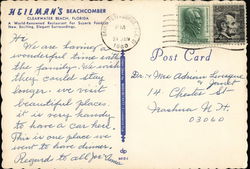 HEILMAN'S BEACHCOMBER
CLEARWATER BEACH, FLORIDA
A World-Renowned Restaurant for Superb Food
New, Exciting, Elegant Surroundings.
Hi
We are having a
wonderful time with
the family. We wish
they could stay
longer. we visit
beautiful places.
it is very handy
to have a car here.
This is one place we
went to have dinner.
Regards to all Joe
Post Card
Dr. & Mrs Adrian Levesque
& family
14 Chester St
Nashua N. H.
03060